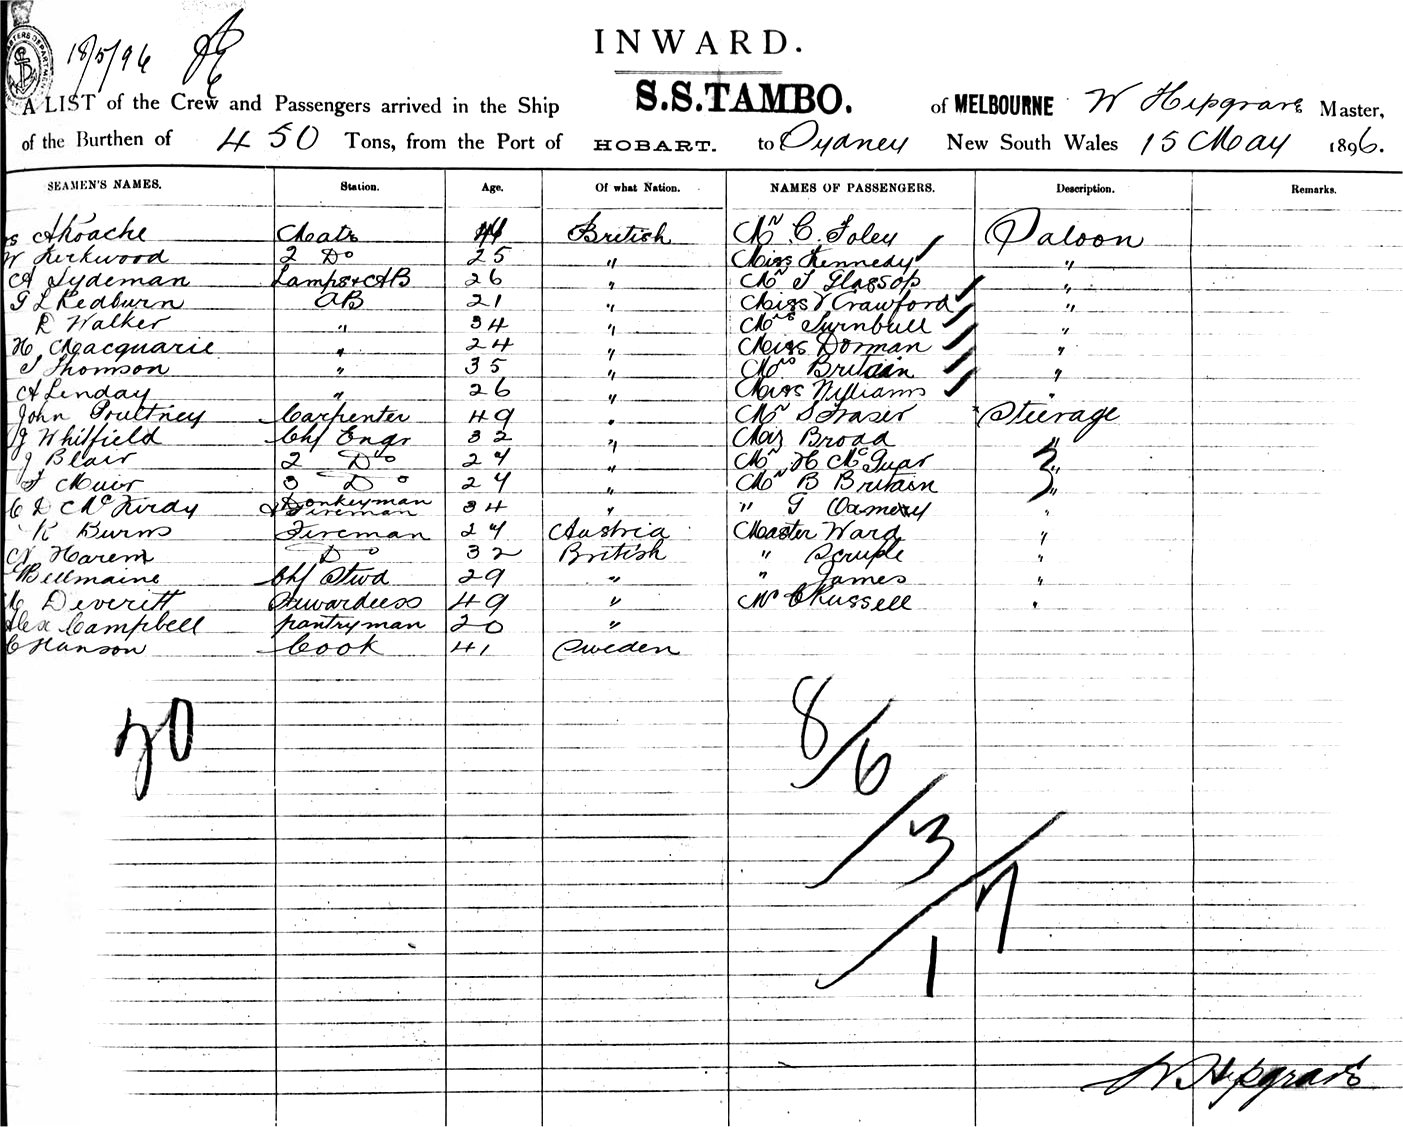 18/5/96
INWARD.
A LIST of the Crew and Passengers arrived in the Ship S.S. TAMBO. of MELBOURNE W Hipgrave Master,
of the Burthen of 450 Tons, from the Port of HOBART. to Sydney New South Wales 15 May 1896.
SEAMEN'S NAMES. Station. Age. Of what Nation. NAMES OF PASSENGERS. Description. Remarks.
Mate British Mr C. Foley Saloon
W Kirkwood 2 Do 25 " Miss Kennedy "
A Sydeman Lamps & AB 26 " Mr T Glassop "
G L Redburn AB 21 " Miss V Crawford "
R Walker " 34 " Mrs Turnbull "
H Macquarie " 24 " Miss Dorman "
T Thomson " 35 " Mrs Britain "
A Linday " 26 " Miss Williams "
John Poultney Carpenter 49 " Mr S Fraser Steerage
J Whitfield Chf Engr 32 " Broad "
J Blair 2 Do 24 " Mr H "
J Muir 3 Do 24 " Mr B Britain "
C D McKirdy & Donkeyman Fireman 34 " " G "
R Burns Fireman 24 Austria Master Ward "
Harem Do 32 British " Scruple "
Bellmaine Chf Stwd 29 " " James "
Deveritt Stewardess 49 " Mr C Russell "
Alex Campbell pantryman 20 "
C Hanson Cook 41 Sweden
20
8/6
/3
/7
1
W Hipgrave